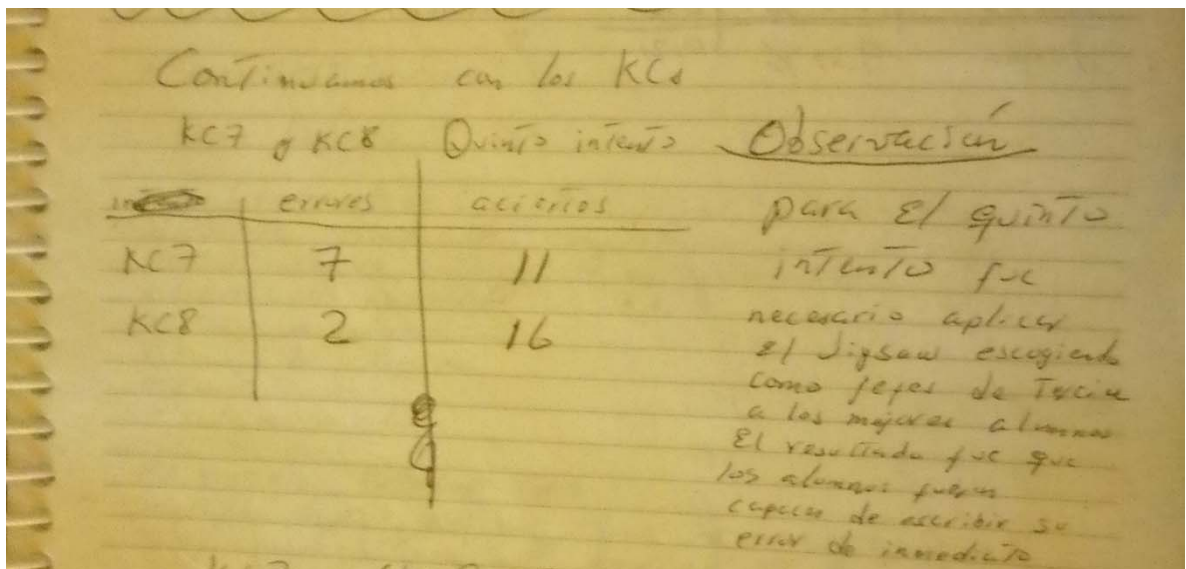 Continuamos con los KCs
KC7 y KC8 Quinto intento
errores aciertos
KC7 7 11
KC8 2 16
Observación
para El quinto
intento fue
necesario aplicar
El Jigsaw escogiendo
como jefes de
a los mejores alumnos
El resultado fue que
los alumnos fueron
capaces de escribir su
error de inmediato